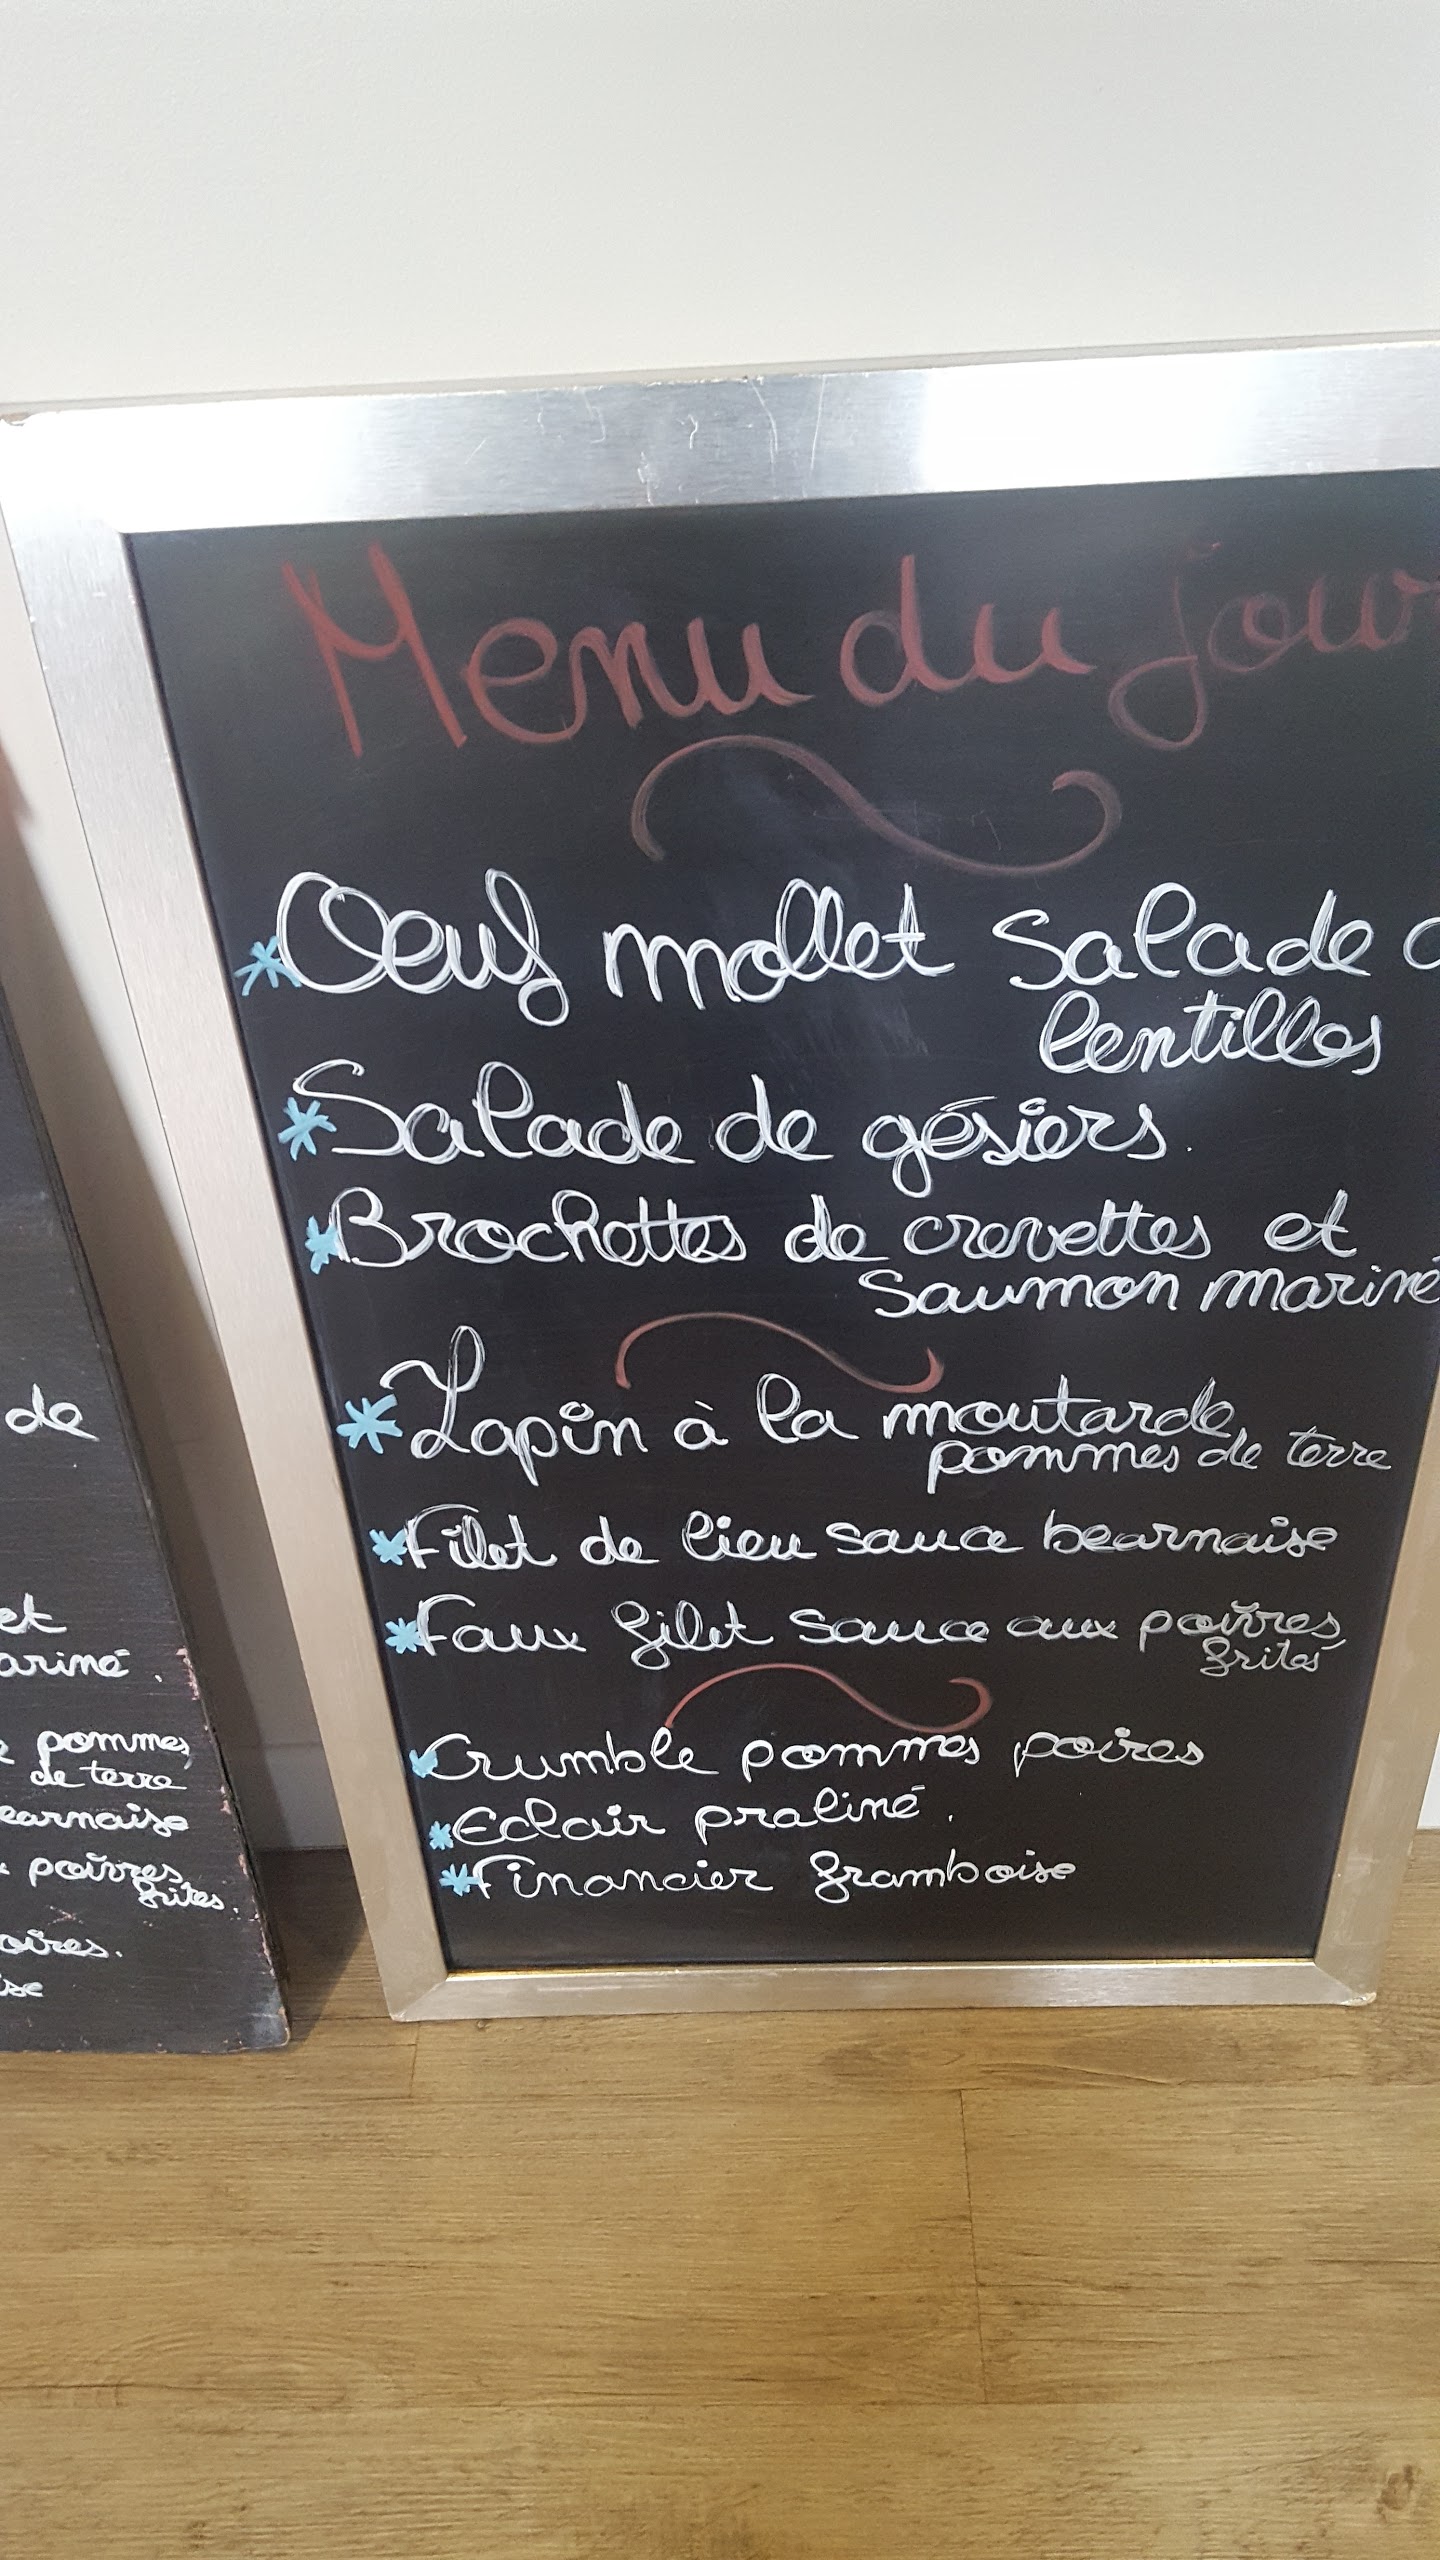 de
et
ariné.
pommes
de terre
earnaise
poivres
frites.
oires.
ise
Menu du jour
*Oeuf mollet Salade
lentilles
*Salade de gésiers.
*Brochettes de crevettes et
saumon mariné
*Lapin à la moutarde
pommes de terre
*Filet de lieu sauce bearnaise
*Faux filet sauce aux poivres
frites
*Crumble pommes poires
*Eclair praliné.
*Financier framboise